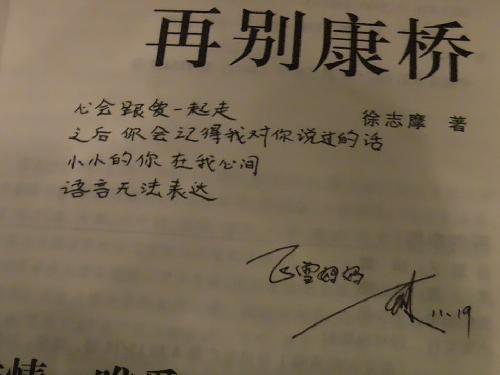 再别康桥
徐志摩 著
心会跟爱一起走
之后你会记得我对你说过的话
小小的你在我心间
语言无法表达
飞雪妈妈
11.19